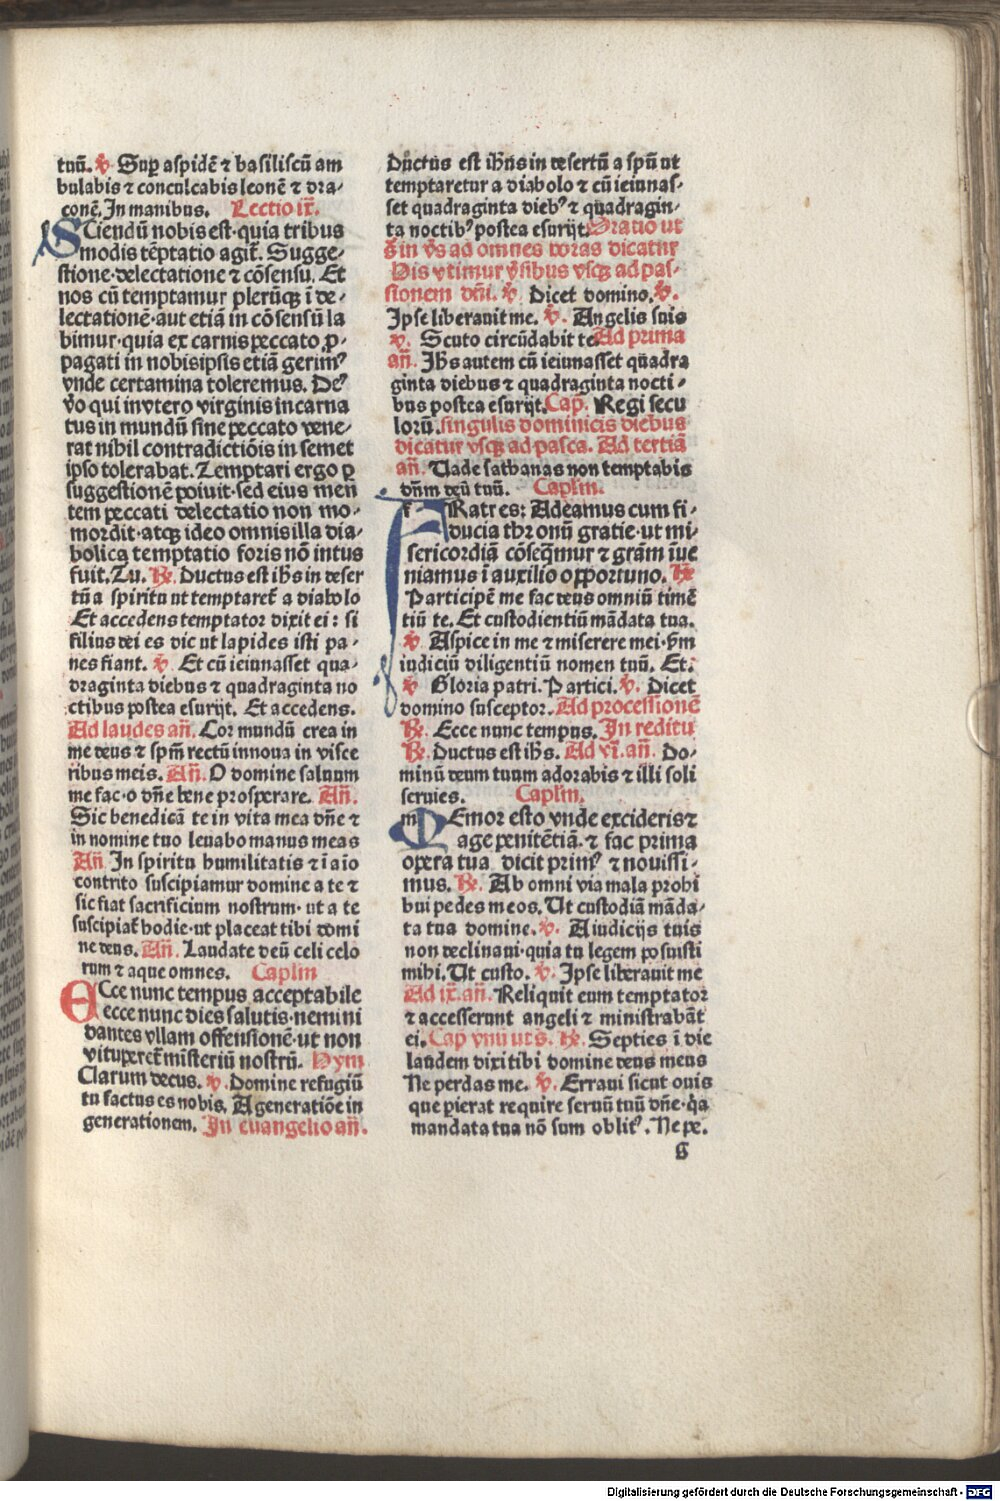 tuū. ℣. Suꝑ aspidē ⁊ basiliscū am
bulabis ⁊ conculcabis leonē ⁊ dra-
conē. In manibus. Lectio ix̄.
SCiendū nobis est· quia tribus
modis tēptatio agit̄. Sugge-
stione· delectatione ⁊ cōsensu. Et
nos cū temptamur plerūqꝫ ī de-
lectationē· aut etiā in cōsensū la
bimur· quia ex carnis peccato ꝓ-
pagati in nobisipsis etiā gerimꝰ
vnde certamina toleremus. Deꝰ
v̄o qui in vtero virginis incarna
tus in mundū sine peccato vene-
rat nihil contradictiōis in semet
ipso tolerabat. Temptari ergo ꝑ
suggestionē potuit· sed eius men
tem peccati delectatio non mo-
mordit· atqꝫ ideo omnis illa dia-
bolica temptatio foris nō intus
fuit. Tu. ℟. Ductus est ihs̄ in deser
tū a spiritu ut temptaret̄ a diabolo
Et accedens temptator dixit ei: si
filius dei es dic ut lapides isti pa-
nes fiant. ℣. Et cū ieiunasset qua-
draginta diebus ⁊ quadraginta no
ctibus postea esurijt. Et accedens.
Ad laudes an̄. Cor mundū crea in
me deus ⁊ spm̄ rectū innoua in visce
ribus meis. An̄. O domine saluum
me fac· o dn̄e bene prosperare. An̄.
Sic benedicā te in vita mea dn̄e ⁊
in nomine tuo leuabo manus meas
An̄. In spiritu humilitatis ⁊ ī aīo
contrito suscipiamur domine a te ⁊
sic fiat sacrificium nostrum· ut a te
suscipiat̄ hodie· ut placeat tibi domi
ne deus. An̄. Laudate deū celi celo
rum ⁊ aque omnes. Caplm̄
ECce nunc tempus acceptabile
ecce nunc dies salutis· nemini
dantes vllam offensionē· ut non
vituperet̄ misteriū nostrū. Hym̄
Clarum decus. ℣. Domine refugiū
tu factus es nobis. A generatiōe in
generationem. In euangelio an̄.
Ductus est ih̄us in desertū a spū ut
temptaretur a diabolo ⁊ cū ieiunas-
set quadraginta diebꝰ ⁊ quadragin-
ta noctibꝰ postea esurijt. Oratio ut
s̄ in v̄s ad omnes horas dicatur
His vtimur v̄sibus vsqꝫ ad pas-
sionem dn̄i. ℣. Dicet domino. ℣.
Ipse liberauit me. ℣. Angelis suis
℣. Scuto circūdabit te. Ad prima
an̄. Ihs̄ autem cū ieiunasset quadra
ginta diebus ⁊ quadraginta nocti-
bus postea esurijt. Cap̄. Regi secu
lorū. singulis dominicis diebus
dicatur vsqꝫ ad pasca. Ad tertiā
an̄. Uade sathanas non temptabis
dn̄m deū tuū. Caplm̄.
FRatres: Adeamus cum fi-
ducia thronū gratie· ut mi-
sericordiā cōseq̄mur ⁊ grām īue
niamus ī auxilio opportuno. ℟
Participē me fac deus omniū timē
tiū te. Et custodientiū mādata tua.
℣. Aspice in me ⁊ miserere mei· s̄m
iudiciū diligentiū nomen tuū. Et.
℣. Gloria patri. Partici. ℣. Dicet
domino susceptor. Ad processionē
℟. Ecce nunc tempus. In reditu
℟. Ductus est ihs̄. Ad vi. an̄. Do-
minū deum tuum adorabis ⁊ illi soli
seruies. Caplm̄.
MEmor esto vnde excideris ⁊
age penitētiā· ⁊ fac prima
opera tua dicit primꝰ ⁊ nouissi-
mus. ℟. Ab omni via mala prohi
bui pedes meos. Ut custodiā māda-
ta tua domine. ℣. A iudicijs tuis
non declinaui· quia tu legem posuisti
mihi. Ut custo. ℣. Ipse liberauit me
Ad ix. an̄. Reliquit eum temptator
⁊ accesserunt angeli ⁊ ministrabāt
ei. Cap̄ vnū ut s̄. ℟. Septies ī die
laudem dixi tibi domine deus meus
Ne perdas me. ℣. Erraui sicut ouis
que pierat require seruū tuū dn̄e· q̄a
mandata tua nō sum oblitꝰ. Ne pe.
g
Digitalisierung gefördert durch die Deutsche Forschungsgemeinschaft - DFG